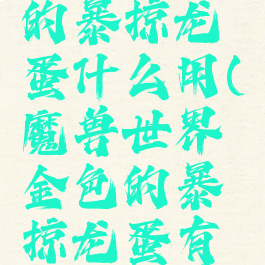 的暴掠龙
蛋什么用(
魔兽世界
金色的暴
掠龙蛋有